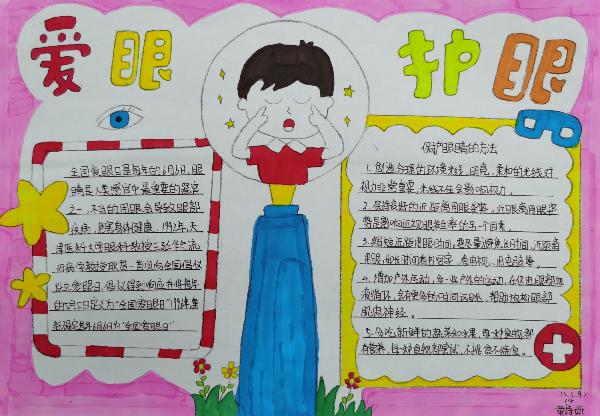 爱眼 护眼
全国爱眼日是每年的6月6日,眼
睛是人类感官中最重要的器官
之一,不当的用眼会导致眼部
疾病,影响身体健康。1992年,天
津医科大学眼科教授王延华与流
行病学教授耿贯一首次向全国倡议
爱眼日,倡议得到响应并将每年
5月5日定义为"全国爱眼日"1996年
6月6日为"全国爱眼日"
保护眼睛的方法
1.创造合理的环境光线,明亮、柔和的光线对
视力非常重要,光线不足会影响视力。
2.保持良好的近距离用眼姿势。近距离用眼姿
势是影响近视眼发生率的另一个因素。
3.缩短近距离用眼时间,要尽量避免长时间、近距离
用眼,如长时间看书写字、看电视、用电脑等。
4.增加户外运动,多一些户外的运动,在促进眼部血
液循环,会有更多的时间远眺,帮助放松眼部
肌肉神经。
5.多吃新鲜的蔬菜和水果,每一种食物都
有营养,每一种食物都尝试,不挑食不偏食。